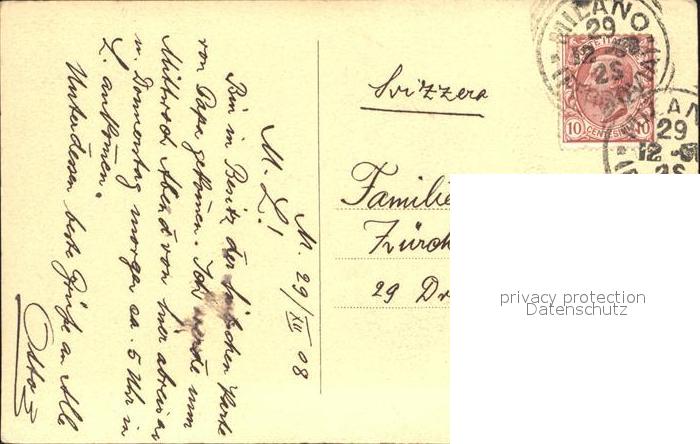 M. 29/XII 08
M. L!
Bin in Besitz der hübschen Karte
von Papa gekommen. Ich werde nun
Mittwoch Abend von hier abreisen
u. Donnerstag morgen ca. 5 Uhr in
L. ankommen.
Unterdessen beste Grüße an Alle
Otto
Svizzera
Familie
Zürch
29 Dr
MILANO
29
12
2S
10 CENTESIMI 10
MILAN
29
12
2S
privacy protection
Datenschutz